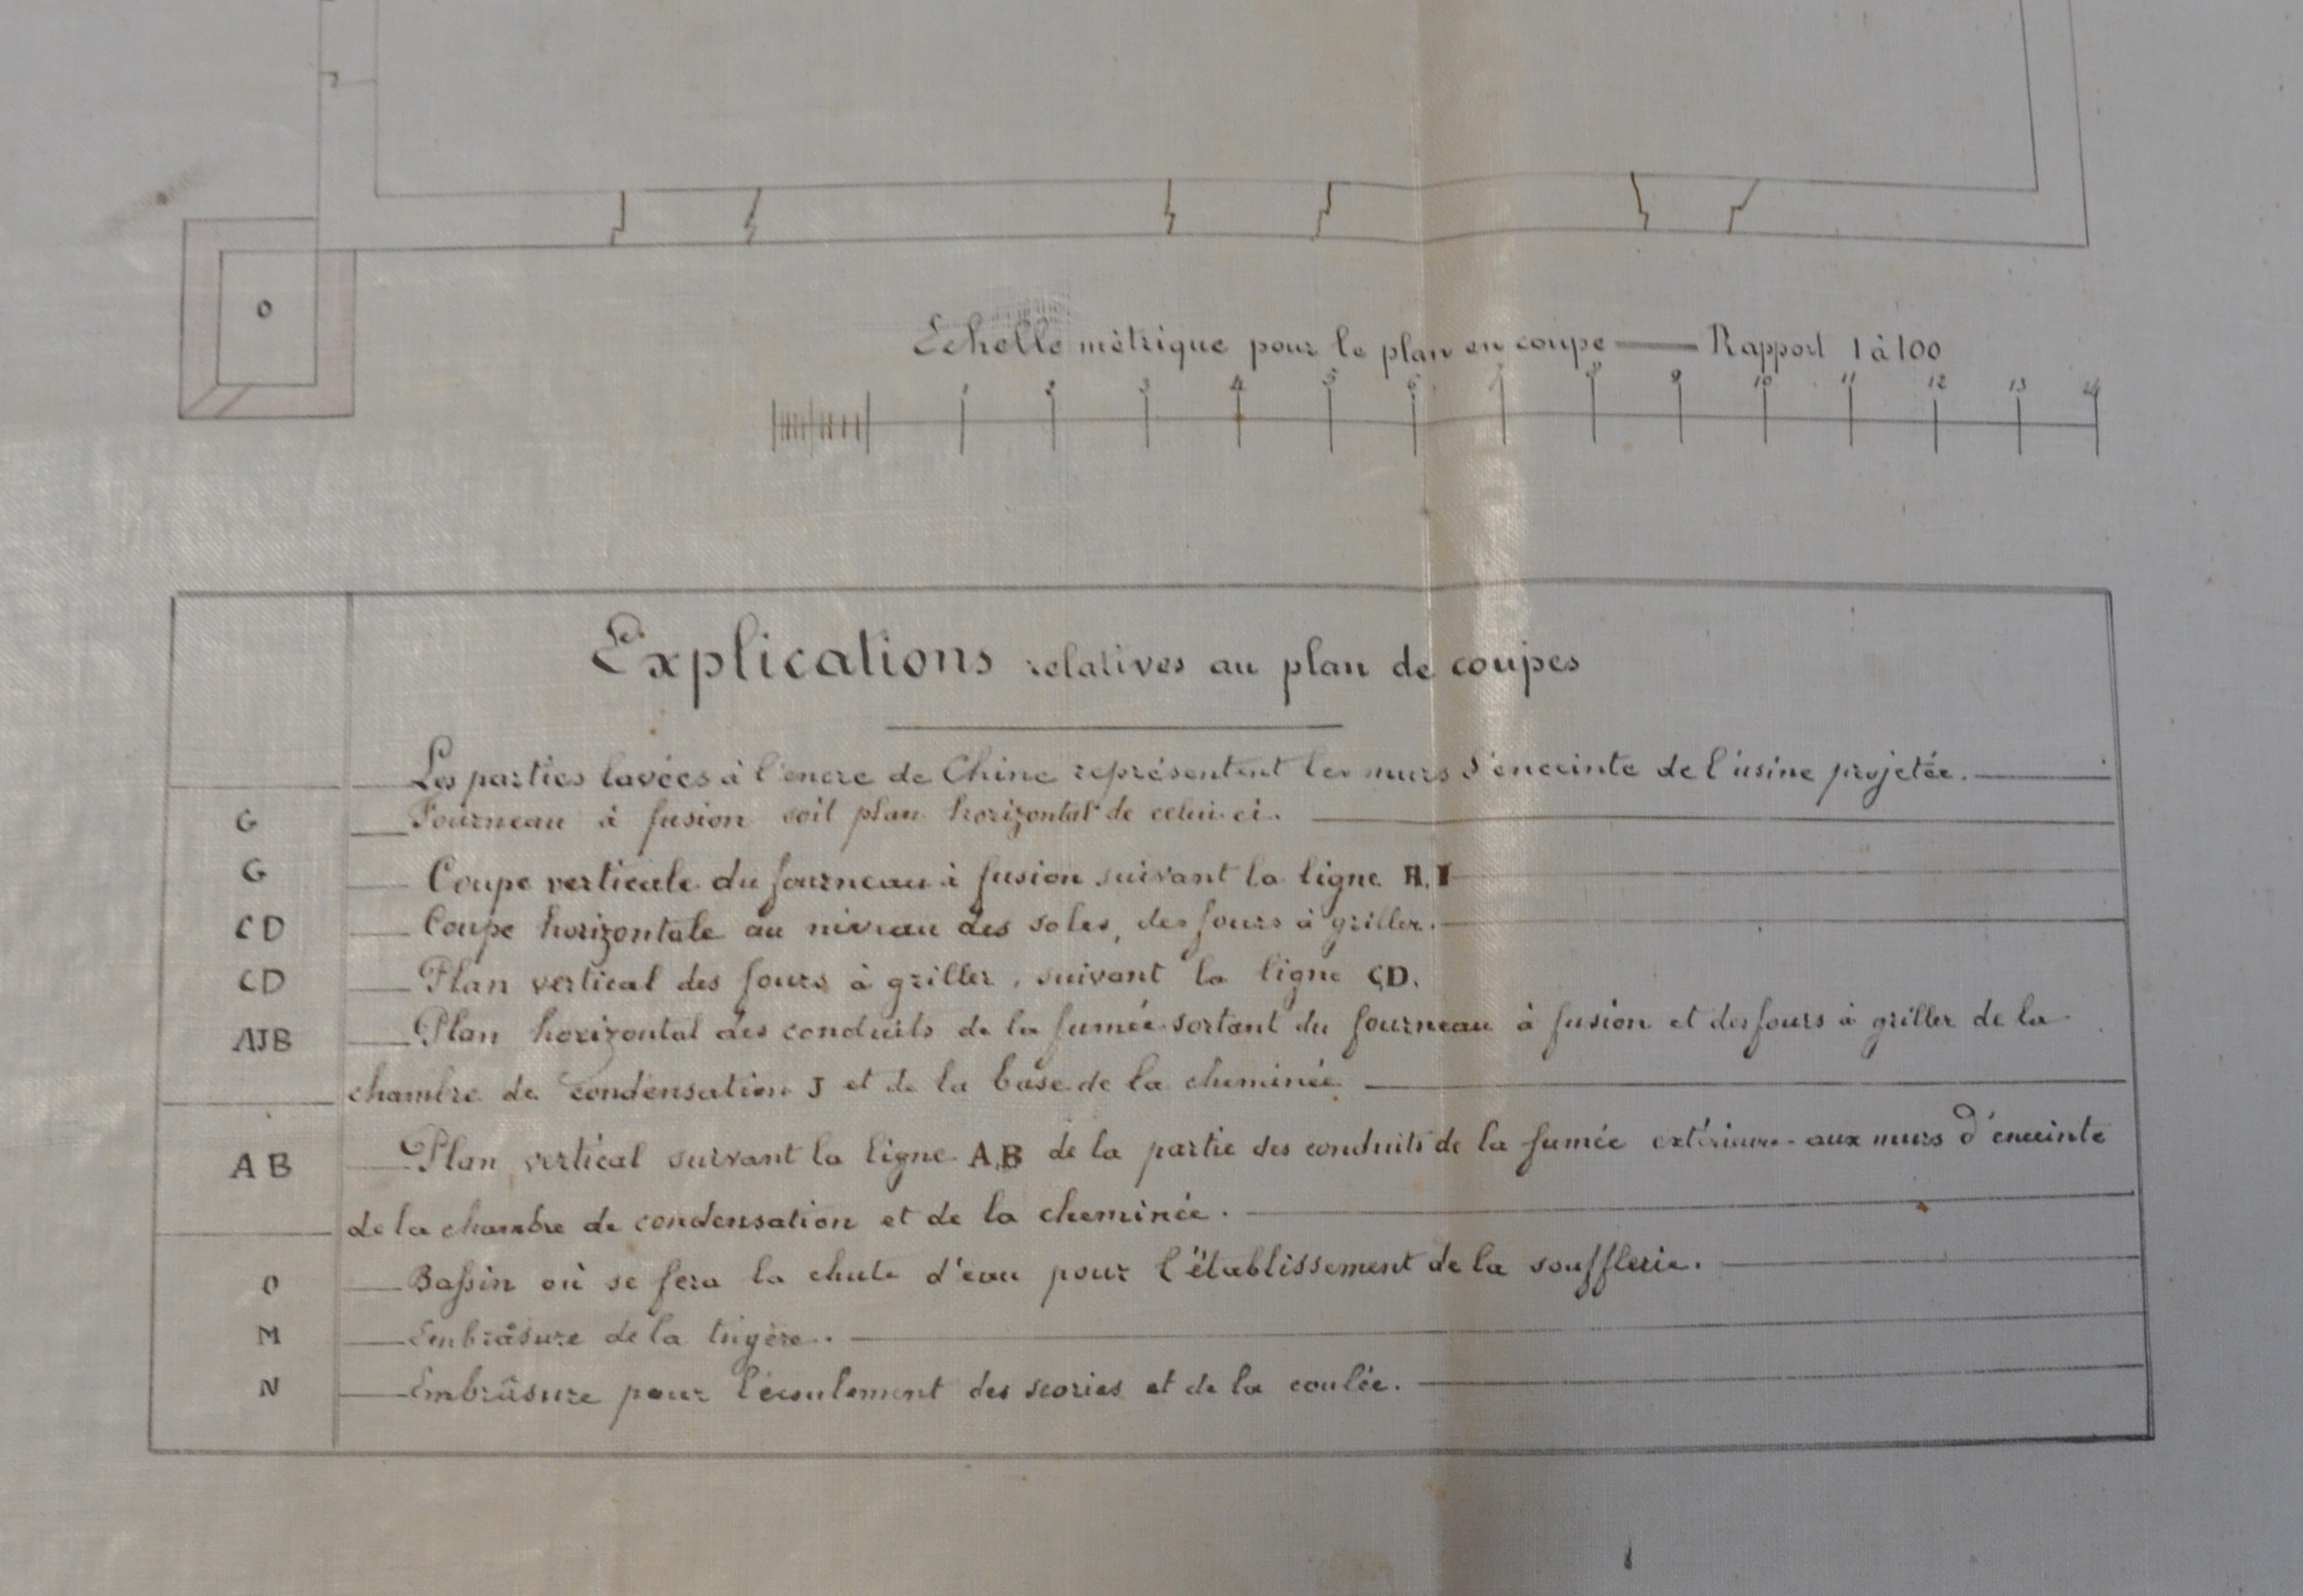 O
Echelle métrique pour le plan en coupe — Rapport 1 à 100
1 2 3 4 5 6 7 8 9 10 11 12 13 14
Explications relatives au plan de coupes
Les parties lavées à l'encre de Chine représentent les murs d'enceinte de l'usine projetée.
G Fourneau à fusion soit plan horizontal de celui-ci.
G Coupe verticale du fourneau à fusion suivant la ligne H.I
CD Coupe horizontale au niveau des soles, des fours à griller.
CD Plan vertical des fours à griller, suivant la ligne CD.
AJB Plan horizontal des conduits de la fumée sortant du fourneau à fusion et des fours à griller de la
chambre de condensation J et de la base de la cheminée
AB Plan vertical suivant la ligne A,B de la partie des conduits de la fumée extérieure aux murs d'enceinte
de la chambre de condensation et de la cheminée.
O Bassin où se fera la chute d'eau pour l'établissement de la soufflerie.
M Embrâsure de la tuyère.
N Embrâsure pour l'écoulement des scories et de la coulée.